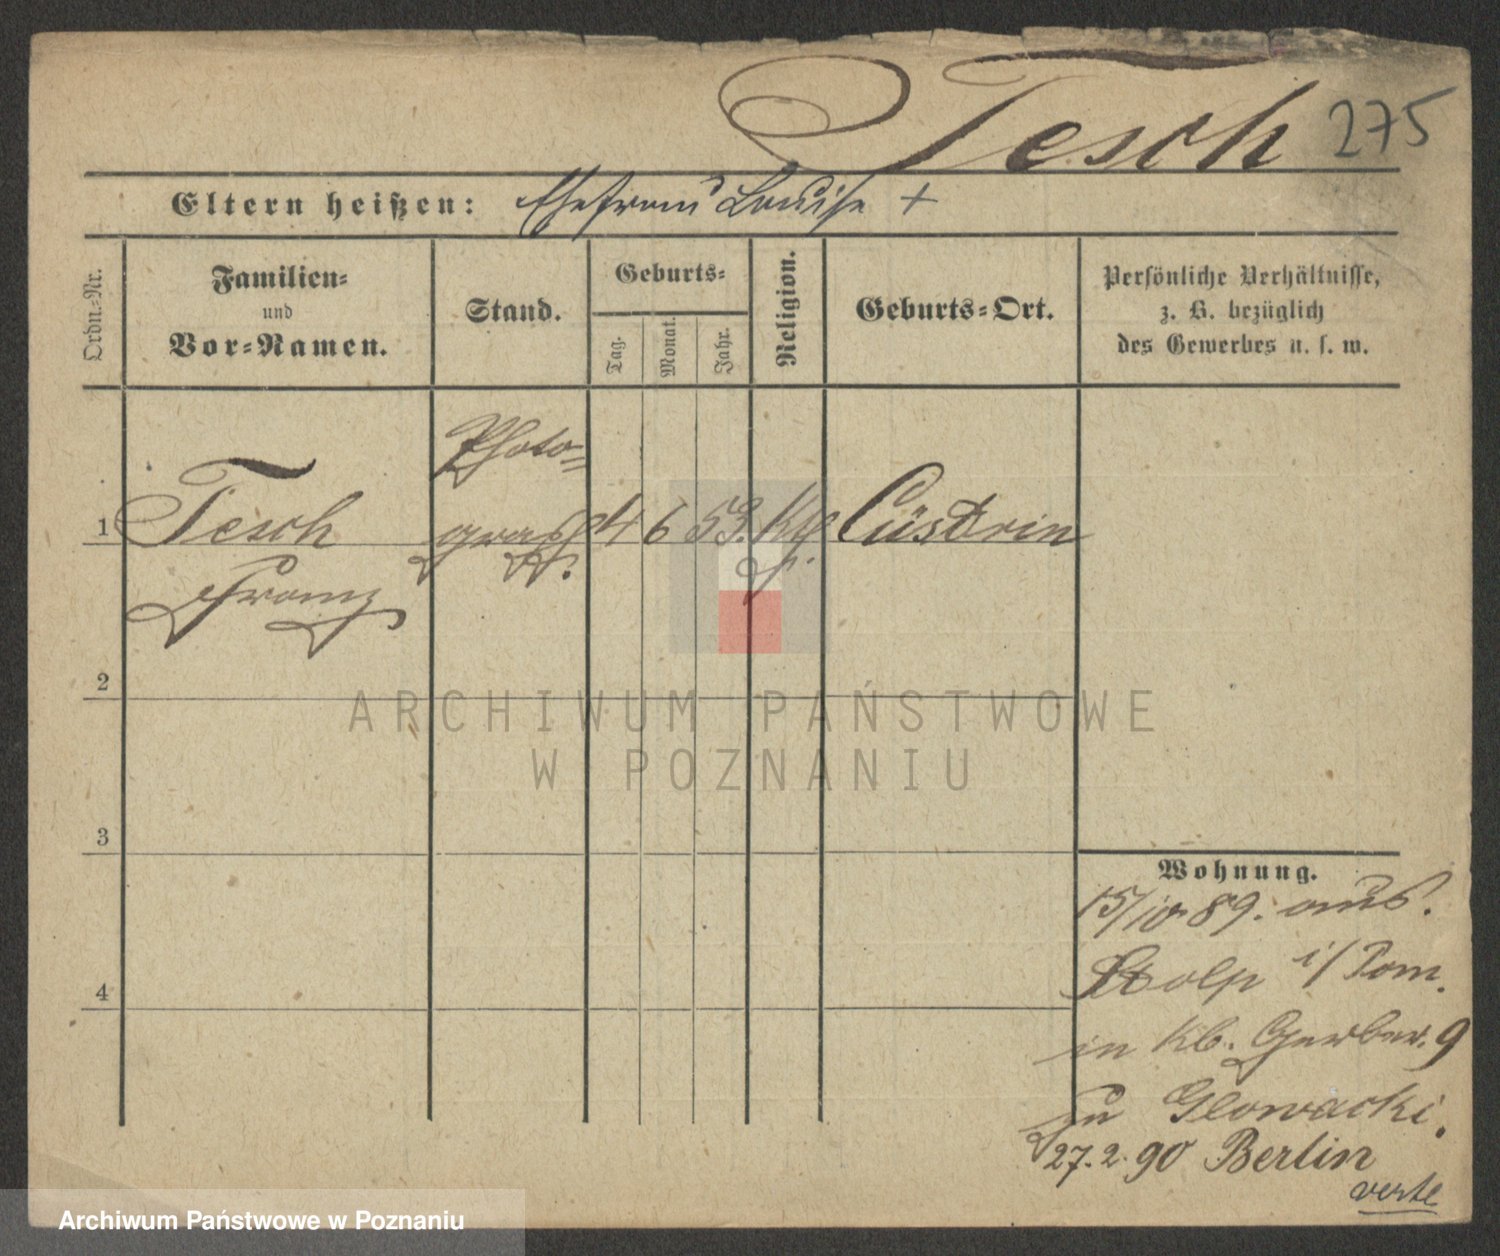 Tesch 275
Eltern heißen: Ehefrau Louise +
Ordn.-Nr.
Familien-
und
Vor-Namen.
Stand.
Geburts-
Tag.
Monat.
Jahr.
Religion.
Geburts-Ort.
Persönliche Verhältnisse,
z. B. bezüglich
des Gewerbes u. s. w.
Photo-
1 Tesch graph. 4 6 53. Kth. Cüstrin
Franz
2
3
4
Wohnung.
15/10 89. aus.
Stolp i/Pom.
in Kl. Gerber. 9
zu Glowacki.
27.2.90 Berlin
verte
ARCHIWUM PAŃSTWOWE
W POZNANIU
Archiwum Państwowe w Poznaniu